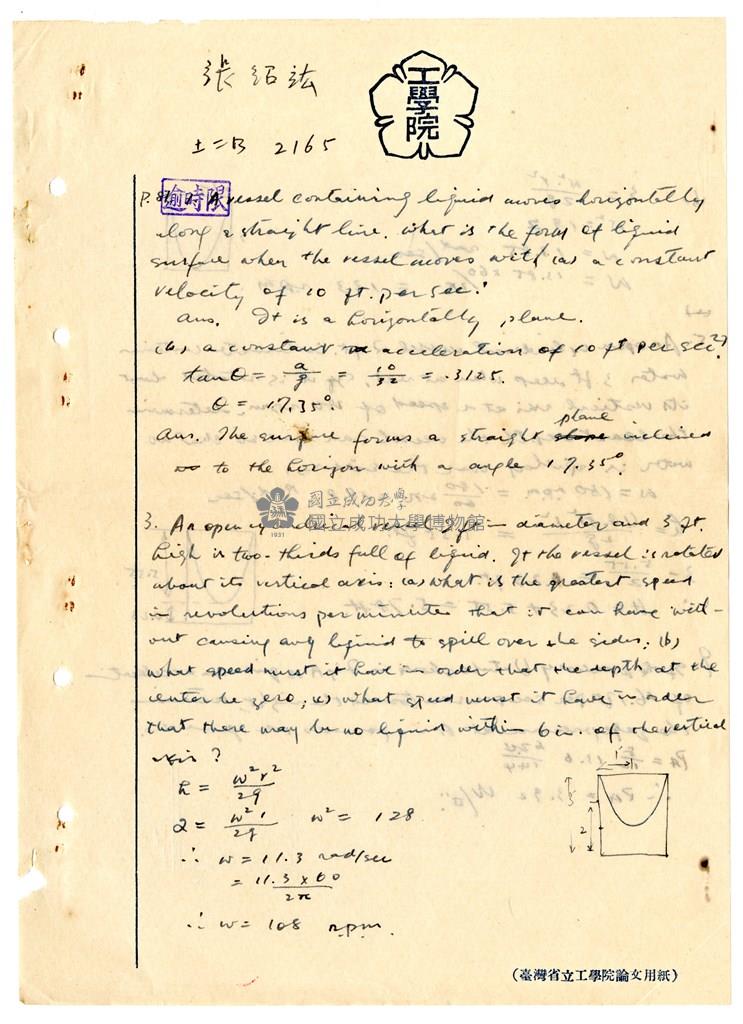 張紹鋐
工學院
土=B 2165
逾時限
P. 87 2. A vessel containing liquid moves horizontally
along a straight line. What is the form of liquid
surface when the vessel moves with (a) a constant
velocity of 10 ft. per sec.?
Ans. It is a horizontally plane.
(b) a constant acceleration of 10 ft per sec²?
tanθ = a/g = 10/32 = .3125.
θ = 17.35°.
plane
Ans. The surface forms a straight slope inclined
to the horizon with a angle 17.35°.
國立成功大學
國立成功大學博物館
1931
3. An open cylindrical vessel 2 ft in diameter and 3 ft.
high is two-thirds full of liquid. If the vessel is rotated
about its vertical axis: (a) what is the greatest speed
in revolutions per minutes that it can have with-
out causing any liquid to spill over the sides; (b)
what speed must it have in order that the depth at the
center be zero; (c) what speed must it have in order
that there may be no liquid within 6 in. of the vertical
axis?
h = w²r²/2g
2 = w² 1/2g w² = 128
∴ w = 11.3 rad/sec
= 11.3 x 60/2π
∴ w = 108 r.p.m.
1'
3
2
(臺灣省立工學院論文用紙)